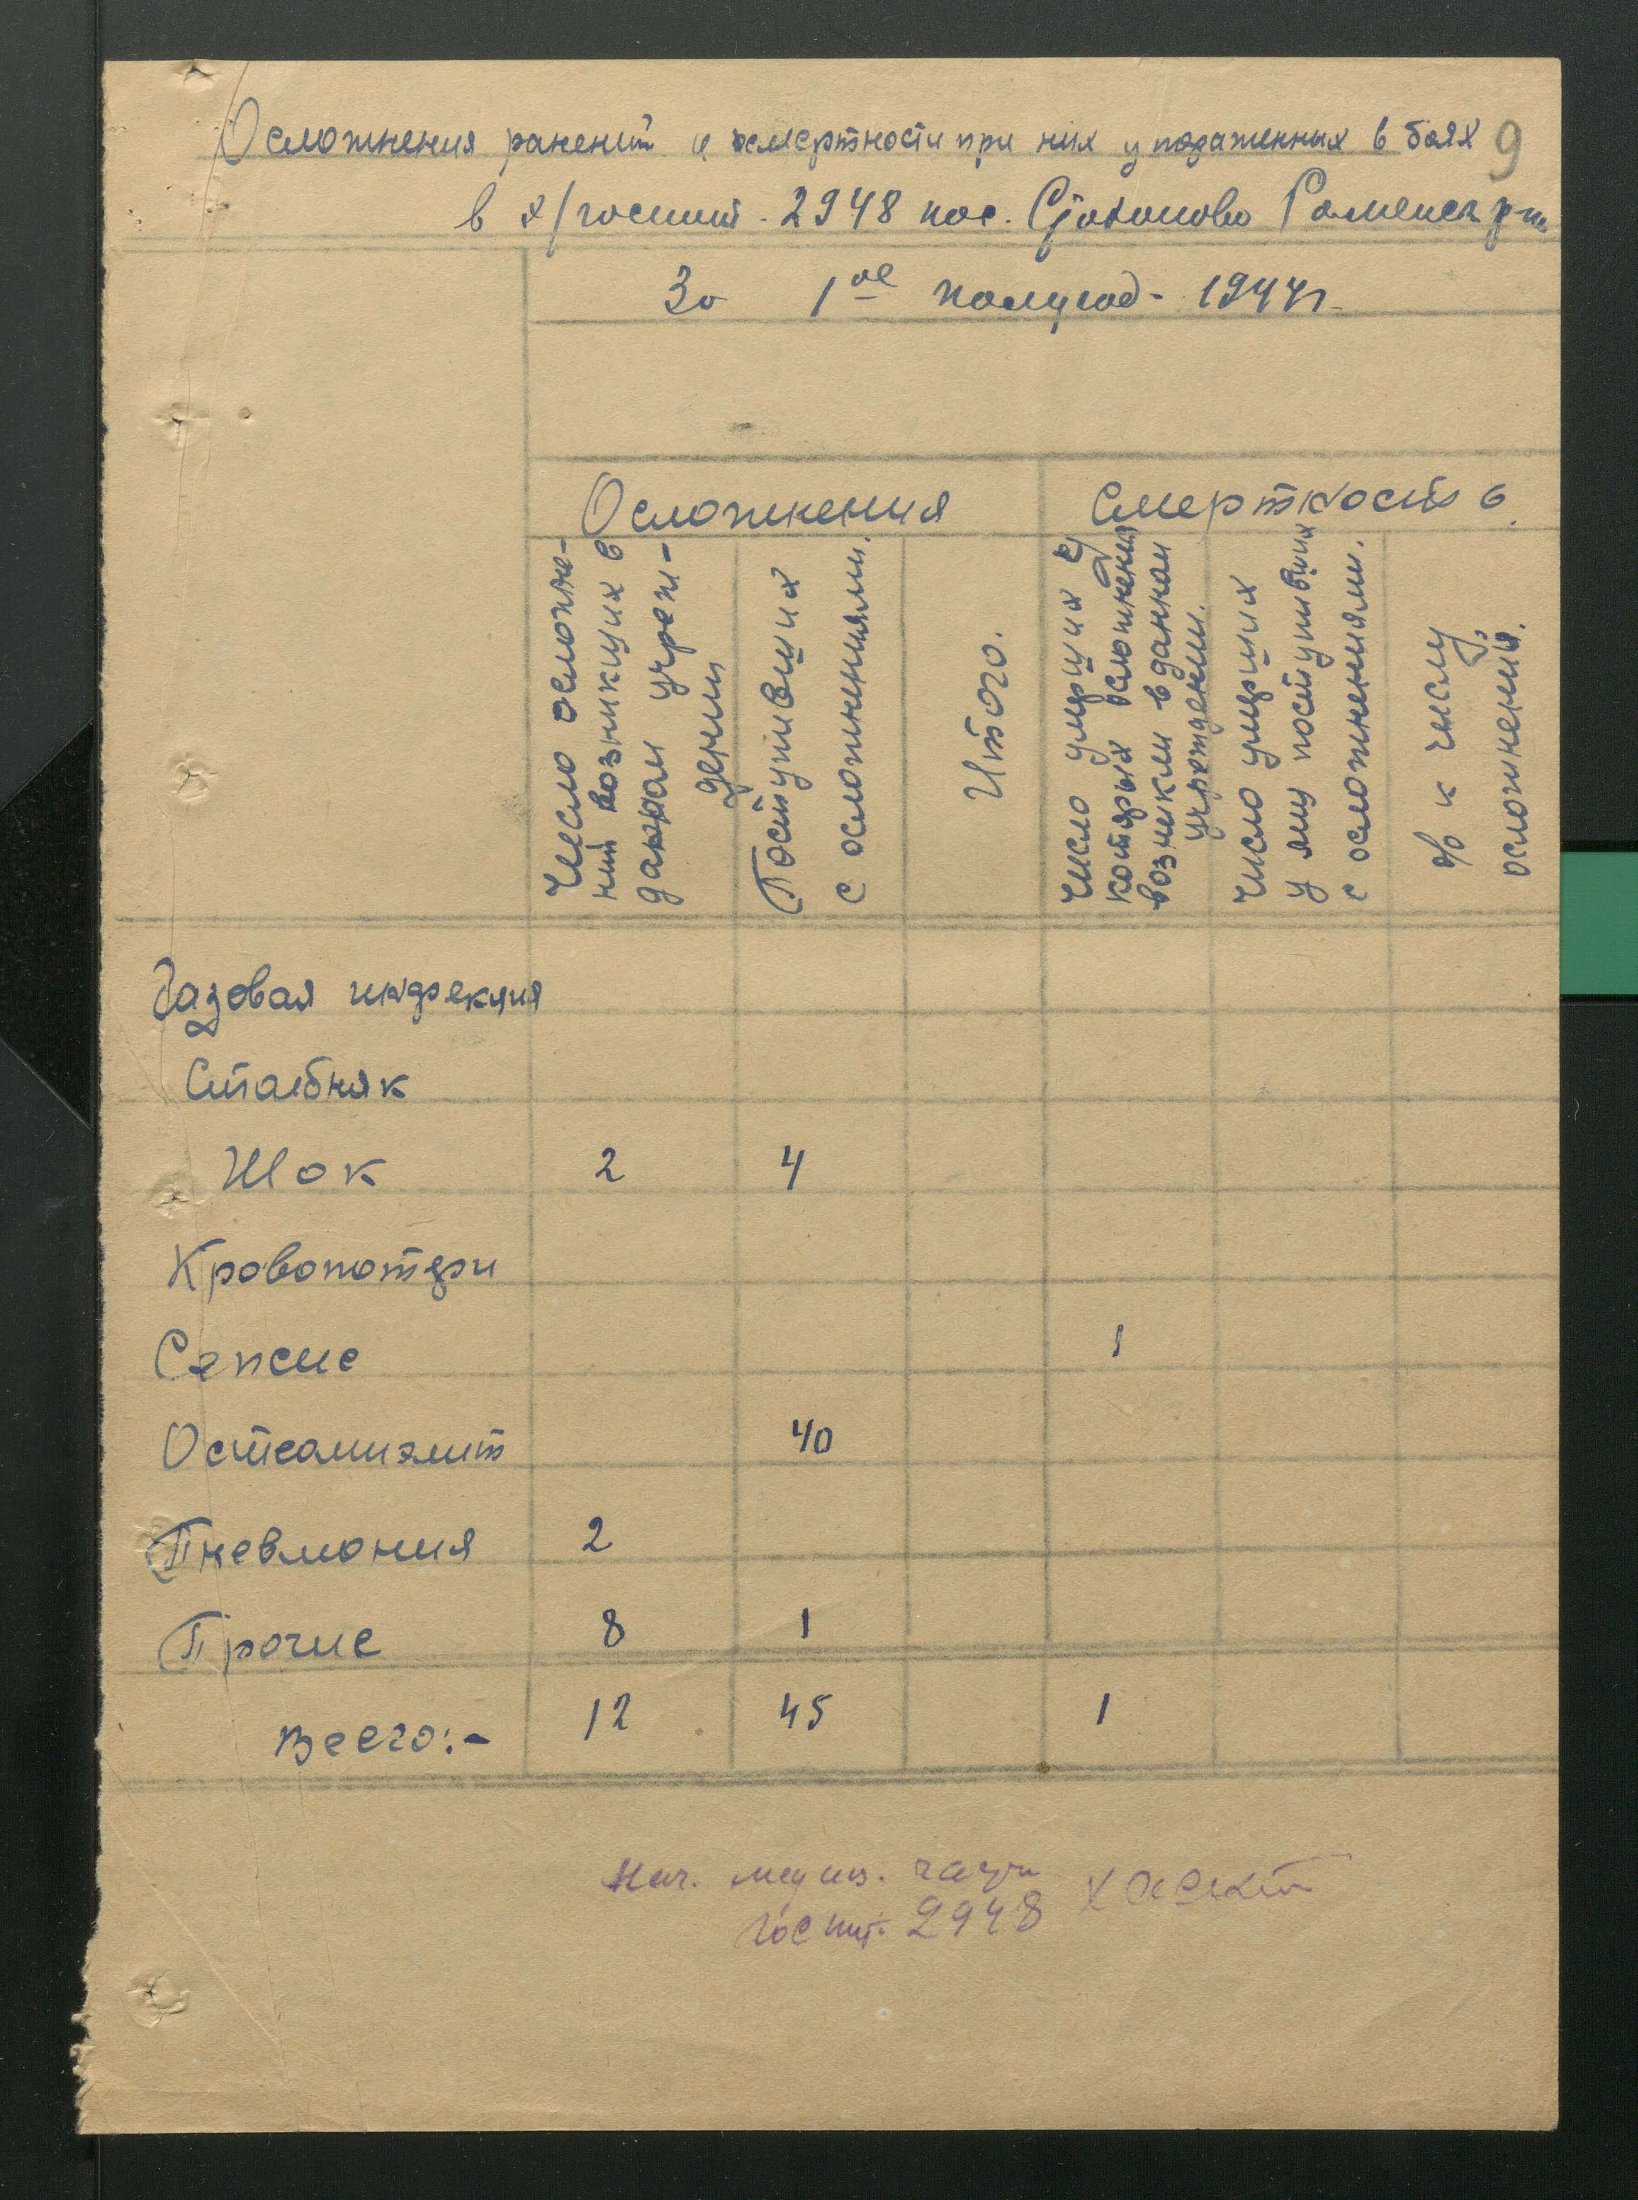 9
Осложнения ранений и смертности при них у пораженных в боях
в э/госпит. 2948 пос. Раменск р-на
За 1ое полугод- 1944г.
Осложнения Смертность
Число осложне-
ний возникщих в
данном учреж-
дении
Поступивших
с осложнениями.
Итого.
Число умерших у
которых осложнения
возникли в данном
учреждении.
Число умерших
у лиц поступивших
с осложнениями.
% к числу
осложнений.
Газовая инфекция
Столбняк
Шок 2 4
Кровопотери
Сепсис 1
Остеомиэлит 40
Пневмония 2
Прочие 8 1
Всего:- 12 45 1
Нач. медиц. части
Госпит. 2948